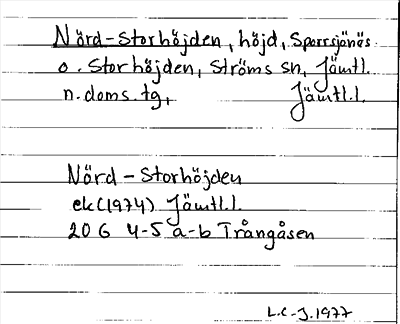 Nörd-Storhöjden, höjd, Sporrsjönäs
o. Storhöjden, Ströms sn, Jämtl.
n. doms. tg, Jämtl.l.
Nörd-Storhöjden
ek(1974) Jämtl.l.
20 G 4-5 a-b Trångåsen
L.C-J. 1977